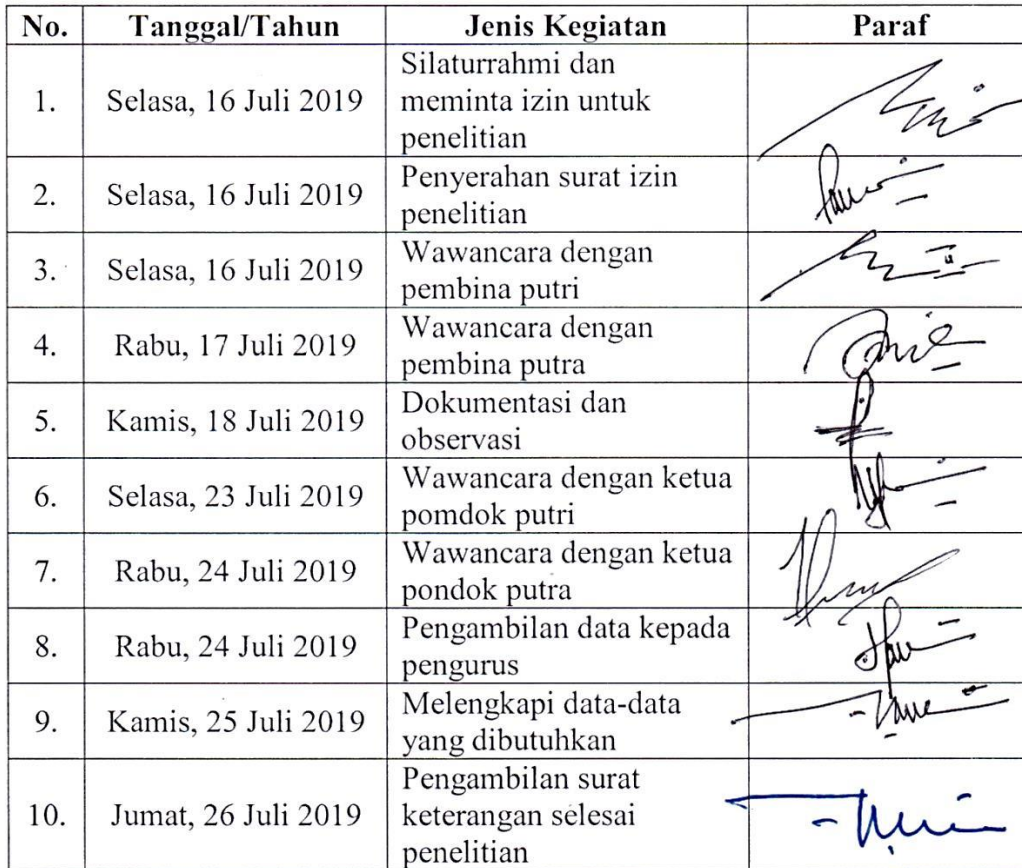 No. Tanggal/Tahun Jenis Kegiatan Paraf
Silaturrahmi dan
1. Selasa, 16 Juli 2019 meminta izin untuk
penelitian
2. Selasa, 16 Juli 2019 Penyerahan surat izin
penelitian
3. Selasa, 16 Juli 2019 Wawancara dengan
pembina putri
4. Rabu, 17 Juli 2019 Wawancara dengan
pembina putra
5. Kamis, 18 Juli 2019 Dokumentasi dan
observasi
6. Selasa, 23 Juli 2019 Wawancara dengan ketua
pomdok putri
7. Rabu, 24 Juli 2019 Wawancara dengan ketua
pondok putra
8. Rabu, 24 Juli 2019 Pengambilan data kepada
pengurus
9. Kamis, 25 Juli 2019 Melengkapi data-data
yang dibutuhkan
Pengambilan surat
10. Jumat, 26 Juli 2019 keterangan selesai
penelitian